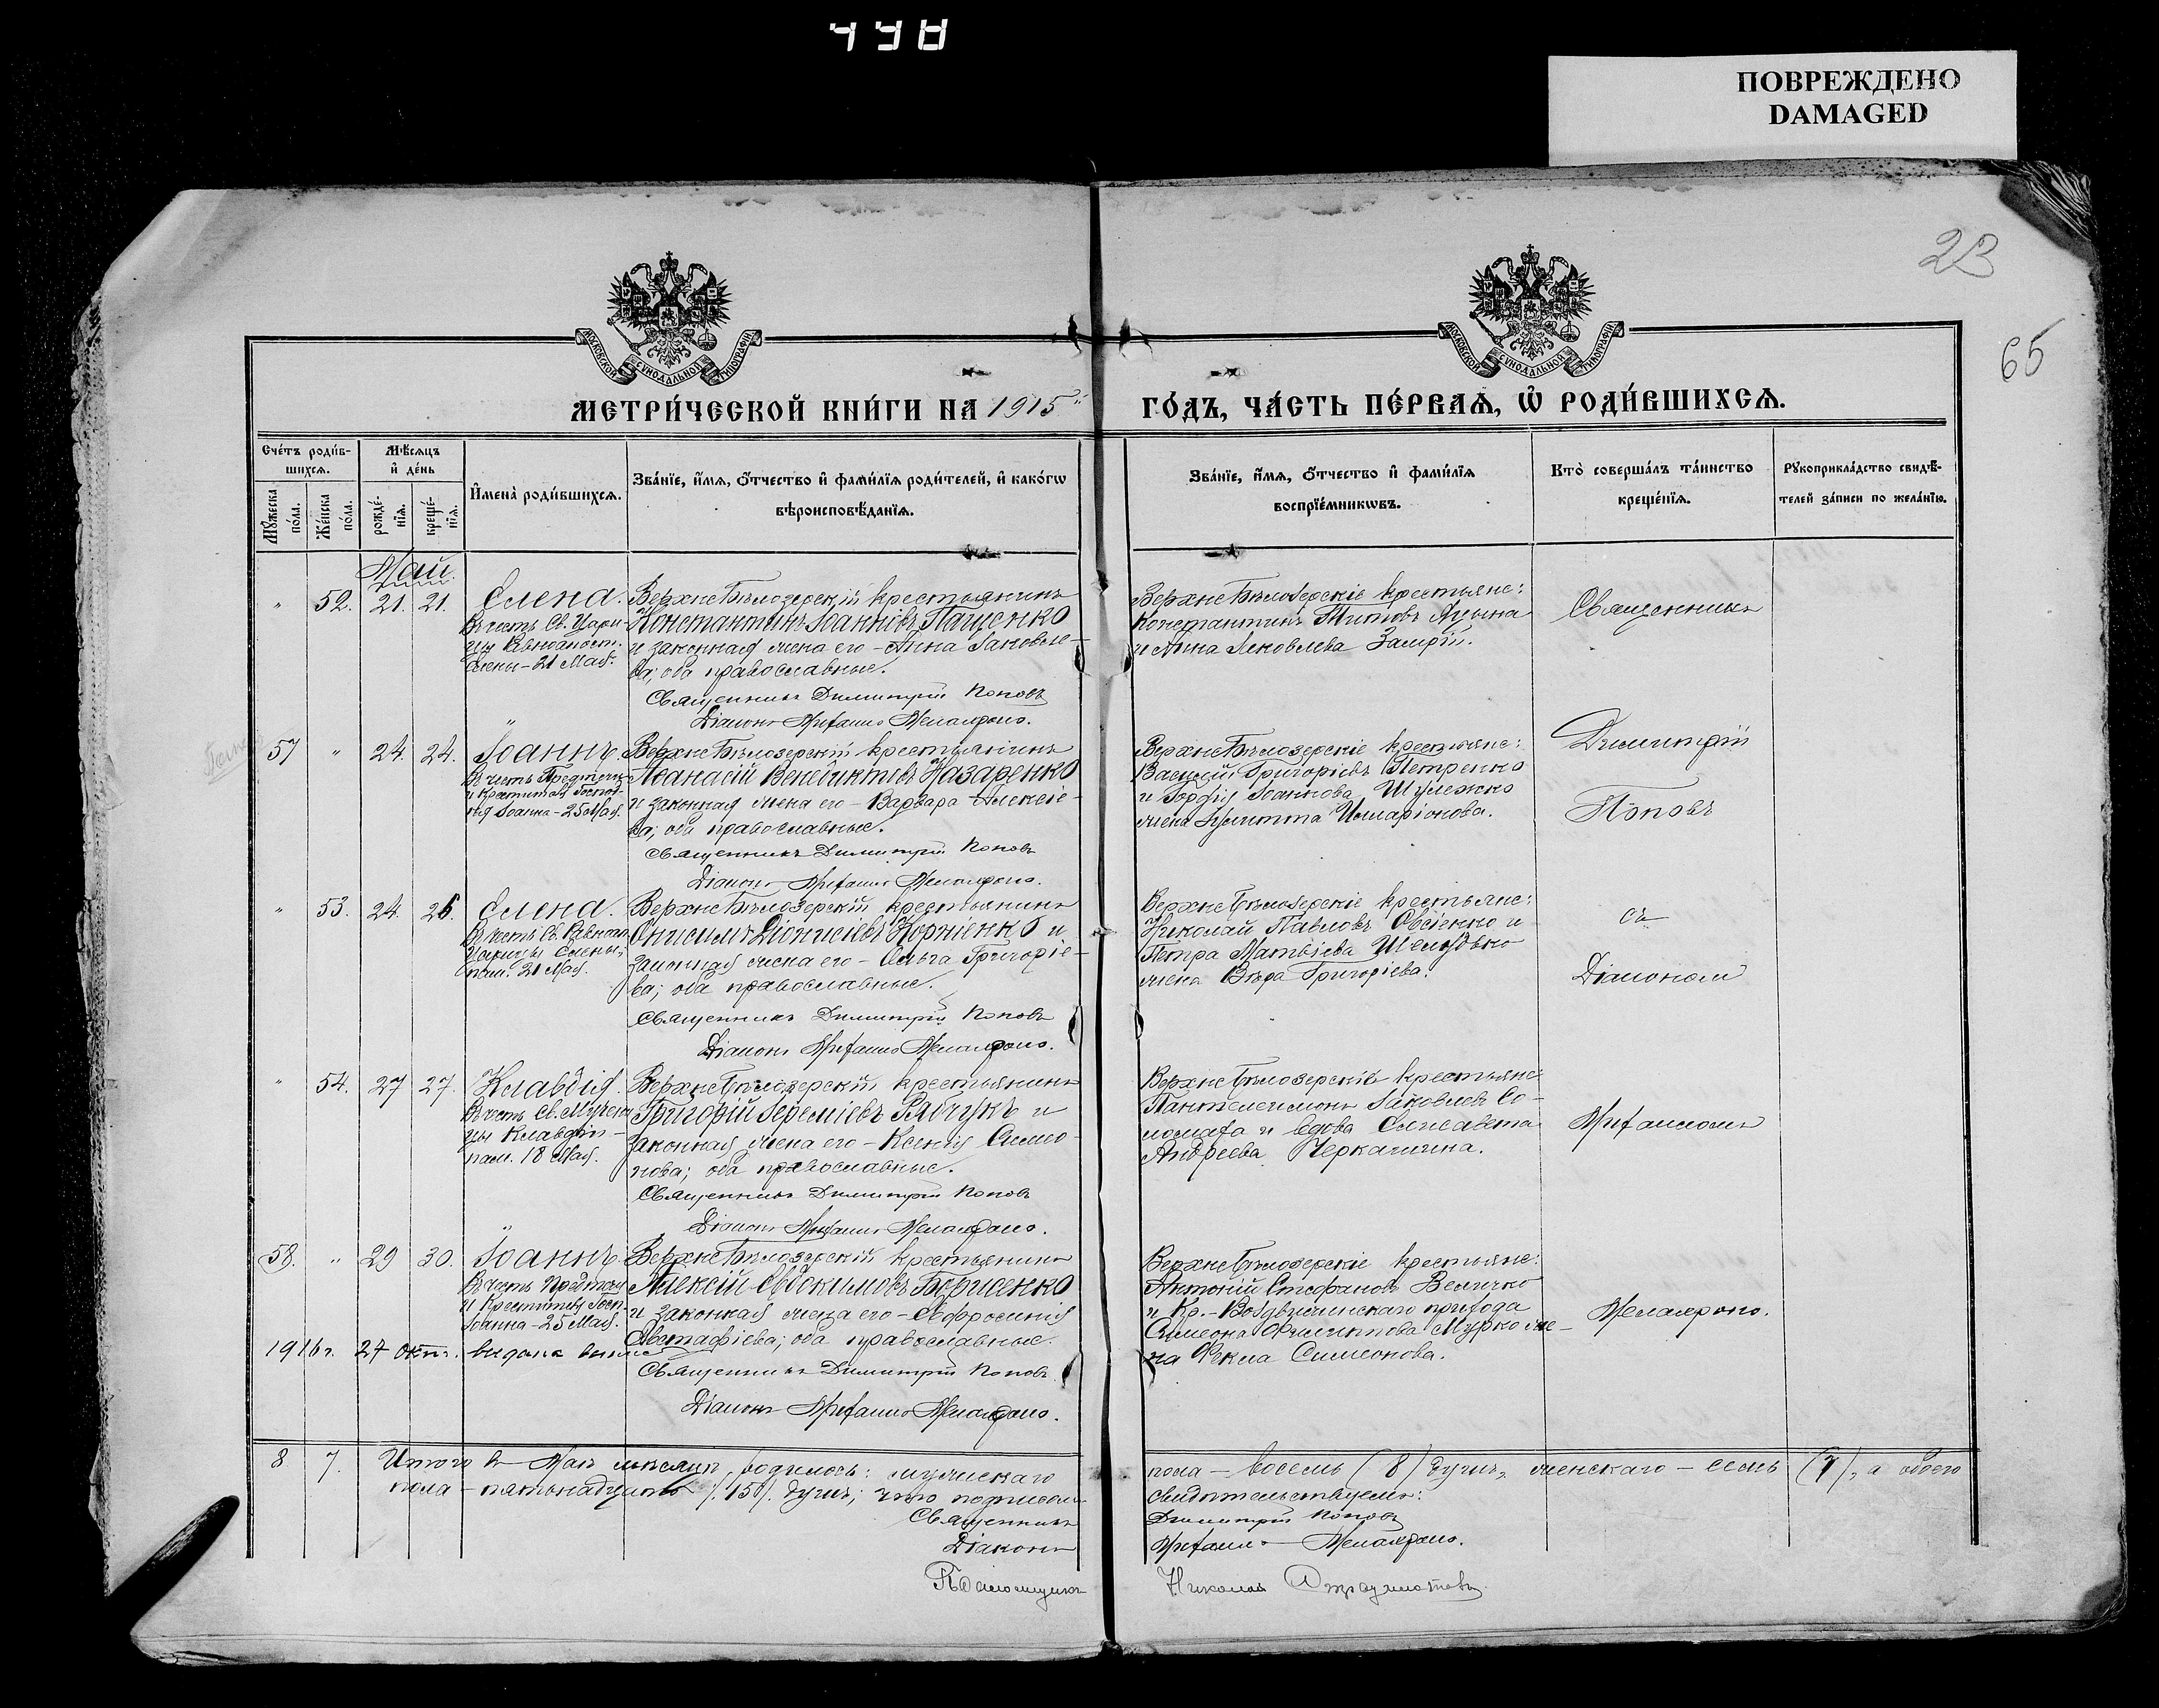 438
ПОВРЕЖДЕНО
DAMAGED
23
65
МОСКОВСКОЙ СУНОДАЛЬНОЙ ТИПОГРАФІИ
МОСКОВСКОЙ СУНОДАЛЬНОЙ ТИПОГРАФІИ
МЕТРИ́ЧЕСКОЙ КНИ́ГИ НА 1915 ГО́ДЪ, ЧА́СТЬ ПЕ́РВАѦ, Ѡ҆ РОДИ́ВШИХСѦ.
Сче́тъ роди́в-
шихсѧ.
Мꙋ́жеска по́ла.
Же́нска по́ла.
Мѣ́сѧцъ
и҆ де́нь
рожде́-нїѧ.
креще́-нїѧ.
И҆мена̀ роди́вшихсѧ.
Зва́нїе, и҆́мѧ, ѻ҆́тчество и҆ фами́лїѧ роди́телей, и҆ како́гѡ
вѣроисповѣ́данїѧ.
Зва́нїе, и҆́мѧ, ѻ҆́тчество и҆ фами́лїѧ
воспрїе́мникѡвъ.
Кто̀ соверша́лъ та́инство
креще́нїѧ.
Рꙋкоприкла́дство свидѣ́-
телей за́писи по жела́нїю.
Май.
" 52. 21. 21. Елена.
Въ честь Св. Цари-
цы Равноапост.
Елены – 21 Мая.
Верхнебѣлозерскій крестьянинъ
Константинъ Іоанновъ Пащенко
и законная жена его – Анна Іаковле-
ва; оба православные.
Священникъ Димитрій Поповъ
Діаконъ
Верхнебѣлозерскіе крестьяне:
Константинъ Титовъ
и Анна Яковлева
Священникъ
57 " 24. 24. Іоаннъ.
Въ честь Предтечи
и Крестителя Господ-
ня Іоанна – 25 Мая.
Верхнебѣлозерскій крестьянинъ
Аѳанасій Венедиктовъ Назаренко
и законная жена его – Варвара Алексѣе-
ва; оба православные.
Священникъ Димитрій Поповъ
Діаконъ
Верхнебѣлозерскіе крестьяне:
Василій Григоріевъ Петренко
и Іоаннова
жена Иларіонова.
Димитрій
Поповъ
" 53. 24. 26. Елена.
Въ честь Св. Равноап.
Царицы Елены,
пам. 21 Мая.
Верхнебѣлозерскій крестьянинъ
Онисимъ Діонисіевъ Корніенко и
законная жена его – Ольга Григоріе-
ва; оба православные.
Священникъ Димитрій Поповъ
Діаконъ
Верхнебѣлозерскіе крестьяне:
Николай Павловъ Овсіенко и
Петра Матвіева Шелудько
жена Вѣра Григоріева.
съ
Діакономъ
" 54. 27 27. Клавдія.
Въ честь Св. Мучени
цы Клавдіи –
пам. 18 Мая.
Верхнебѣлозерскій крестьянинъ
Григорій Іереміевъ Рябчукъ и
законная жена его – Ксенія Симео-
нова; оба православные.
Священникъ Димитрій Поповъ
Діаконъ
Верхнебѣлозерскіе крестьяне:
Пантелеимонъ Іаковлевъ Со-
ломаха и вдова Елисавета
Андреева Черкашина.
58. " 29 30. Іоаннъ.
Въ честь Предтечи
и Крестителя Госп.
Іоанна – 25 Мая.
Верхнебѣлозерскій крестьянинъ
Алексій Евдокимовъ Борисенко
и законная жена его – Евфросинія
Евстафіева; оба православные.
Священникъ Димитрій Поповъ.
Діаконъ
Верхнебѣлозерскіе крестьяне:
Антоній Стефановъ Величко
и Кр.-Воздвиженскаго прихода
Симеона Филиппова Мурко же-
на Ѳекла Симеонова.
1916 г. 27 окт. выдана
8 7. Итого въ Маѣ мѣсяцѣ родилось: мужескаго пола – восемь (8) душъ, женскаго – семь (7), а обоего
пола – пятнадцать (15) душъ; что подписомъ свидѣтельствуемъ:
Священникъ Димитрій Поповъ
Діаконъ
Псаломщикъ Николай